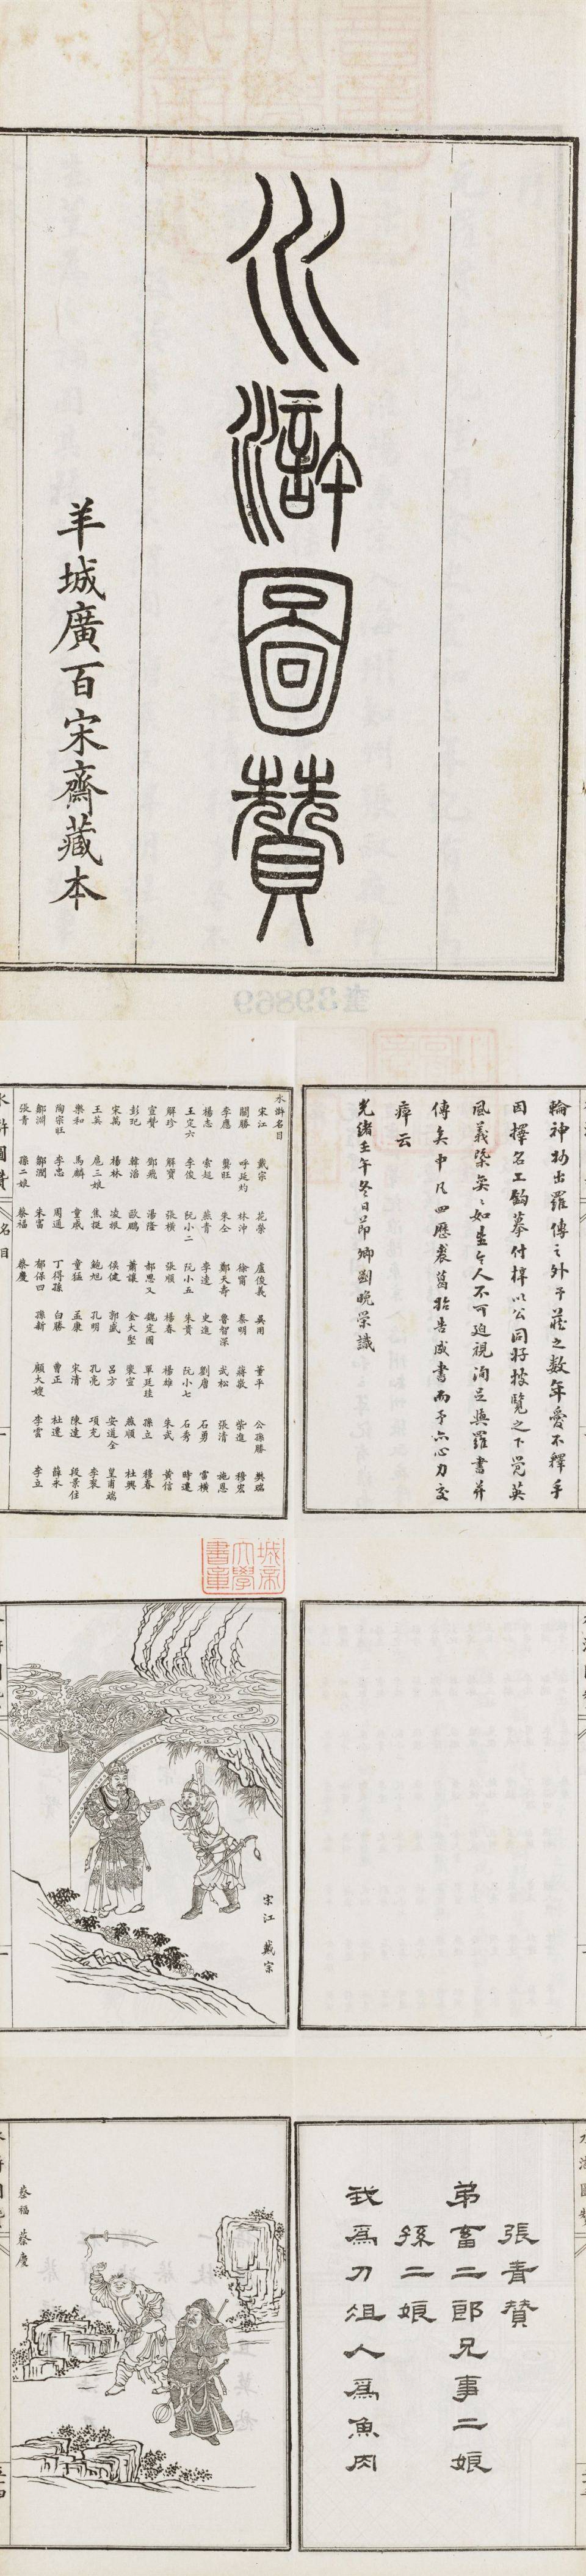 水滸圖贊
羊城廣百宋齋藏本
輪神物出羅傳之外予藏之數年愛不釋手
因擇名工鈎摹付梓以公同好披覽之下覺英
風義槩奕奕如生令人不可迫視洵足與羅書並
傳矣中凡四歷裘葛始告成書而予亦心力交
瘁云
光緒壬午冬日節卿劉晚榮識
水滸名目
宋江 戴宗 花榮 盧俊義 吳用 董平 公孫勝 樊瑞
關勝 呼延灼 林沖 徐甯 秦明 蔣敬 柴進 穆宏
李應 龔旺 朱仝 鄭天壽 魯智深 武松 張清 施恩
楊志 索超 燕青 李逵 史進 劉唐 石勇 雷橫
王定六 李俊 阮小二 阮小五 朱貴 阮小七 石秀 時遷
解珍 解寶 張橫 張順 楊春 楊雄 朱武 黃信
宣贊 鄧飛 湯隆 郝思文 魏定國 單廷珪 孫立 穆春
彭玘 韓滔 歐鵬 蕭讓 金大堅 裴宣 燕順 杜興
宋萬 楊林 凌振 侯健 郭盛 呂方 安道全 皇甫端
王英 扈三娘 焦挺 鮑旭 孔明 孔亮 項充 李袞
樂和 馬麟 童威 童猛 孟康 宋清 陳達 段景住
陶宗旺 李忠 周通 丁得孫 白勝 曹正 杜遷 薛永
鄒淵 鄒潤 朱富 郁保四 孫新 顧大嫂 李雲 李立
張青 孫二娘 蔡福 蔡慶
水滸圖贊 名目
宋江 戴宗
張青贊
弟畜二郎兄事二娘
孫二娘
我爲刀俎人爲魚肉
蔡福 蔡慶